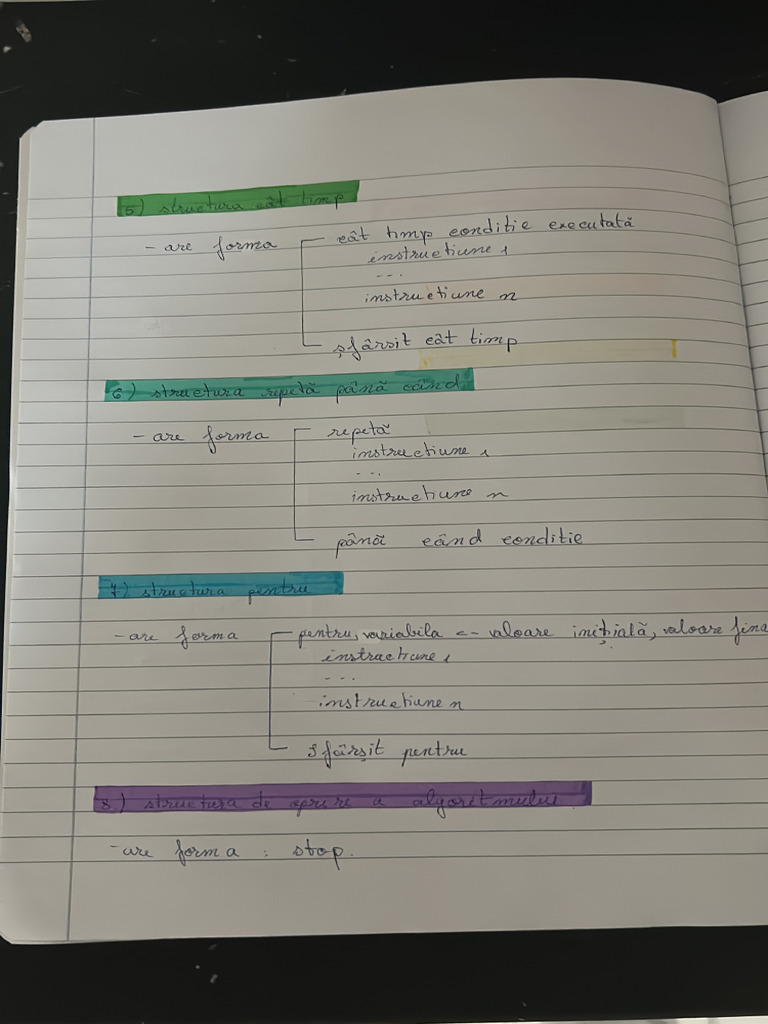 5) structura cât timp
- are forma cât timp conditie executată
instructiune 1
...
instructiune n
sfârsit cât timp
6) structura repetă până când
- are forma repetă
instructiune 1
...
instructiune n
până când conditie
7) structura pentru
- are forma pentru, variabila <- valoare inițială, valoare fina
instructiune 1
...
instructiune n
sfârșit pentru
8) structura de oprire a algoritmului
- are forma : stop.